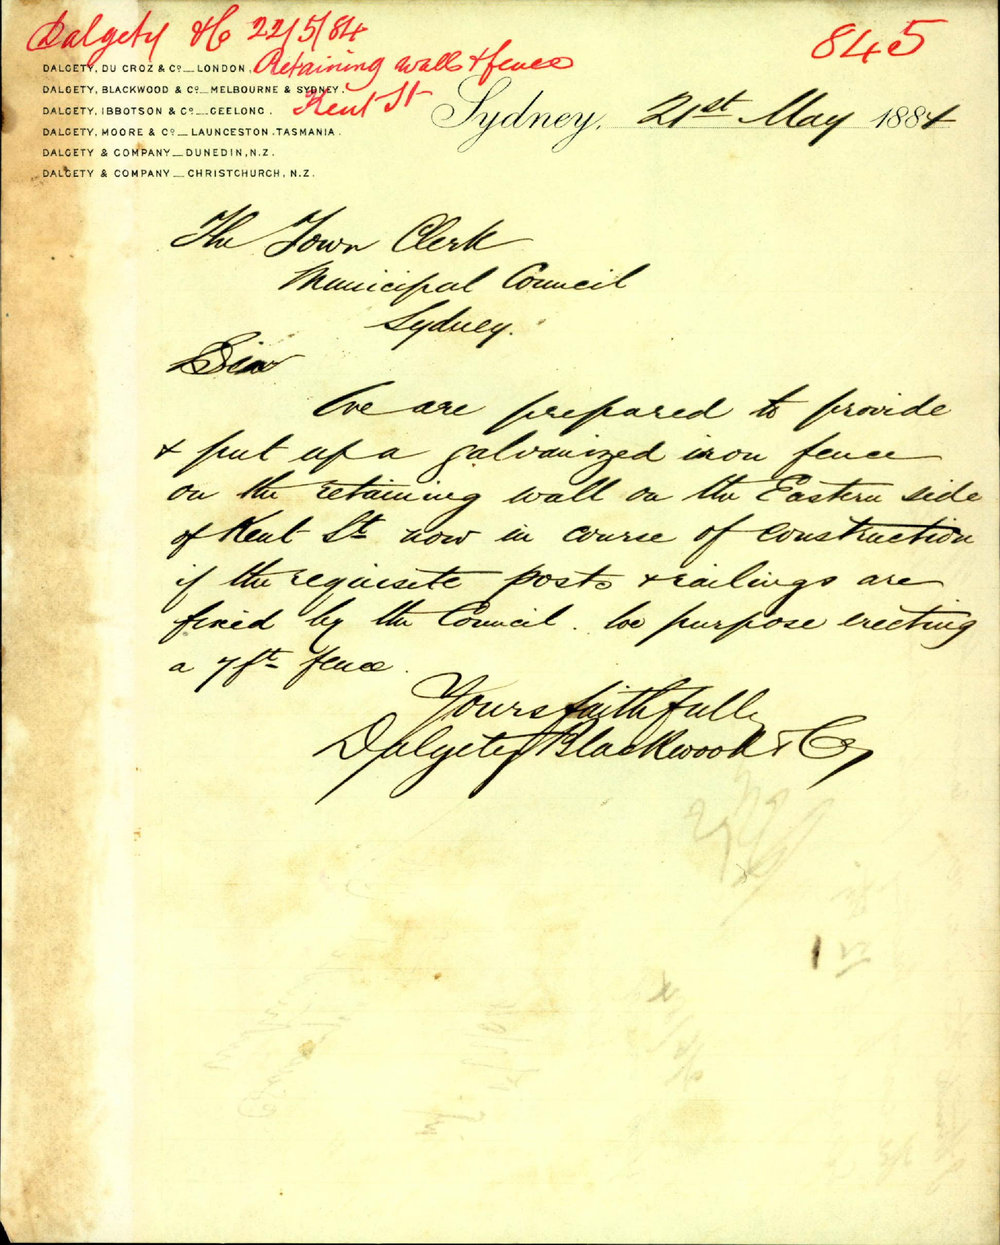 Dalgety & Co 22/5/84
845
Retaining wall & fence
Kent St
DALGETY, DU CROZ & Co__LONDON.
DALGETY, BLACKWOOD & Co__MELBOURNE & SYDNEY.
DALGETY, IBBOTSON & Co__GEELONG.
DALGETY, MOORE & Co__LAUNCESTON.TASMANIA.
DALGETY & COMPANY__DUNEDIN, N.Z.
DALGETY & COMPANY__CHRISTCHURCH, N.Z.
Sydney, 21st May 1884
The Town Clerk
Municipal Council
Sydney.
Sir
We are prepared to provide
& put up a galvanized iron fence
on the retaining wall on the Eastern side
of Kent St now in course of construction
if the requisite posts & railings are
fixed by the Council. We purpose erecting
a 7ft fence.
Yours faithfully
Dalgety Blackwood & Co